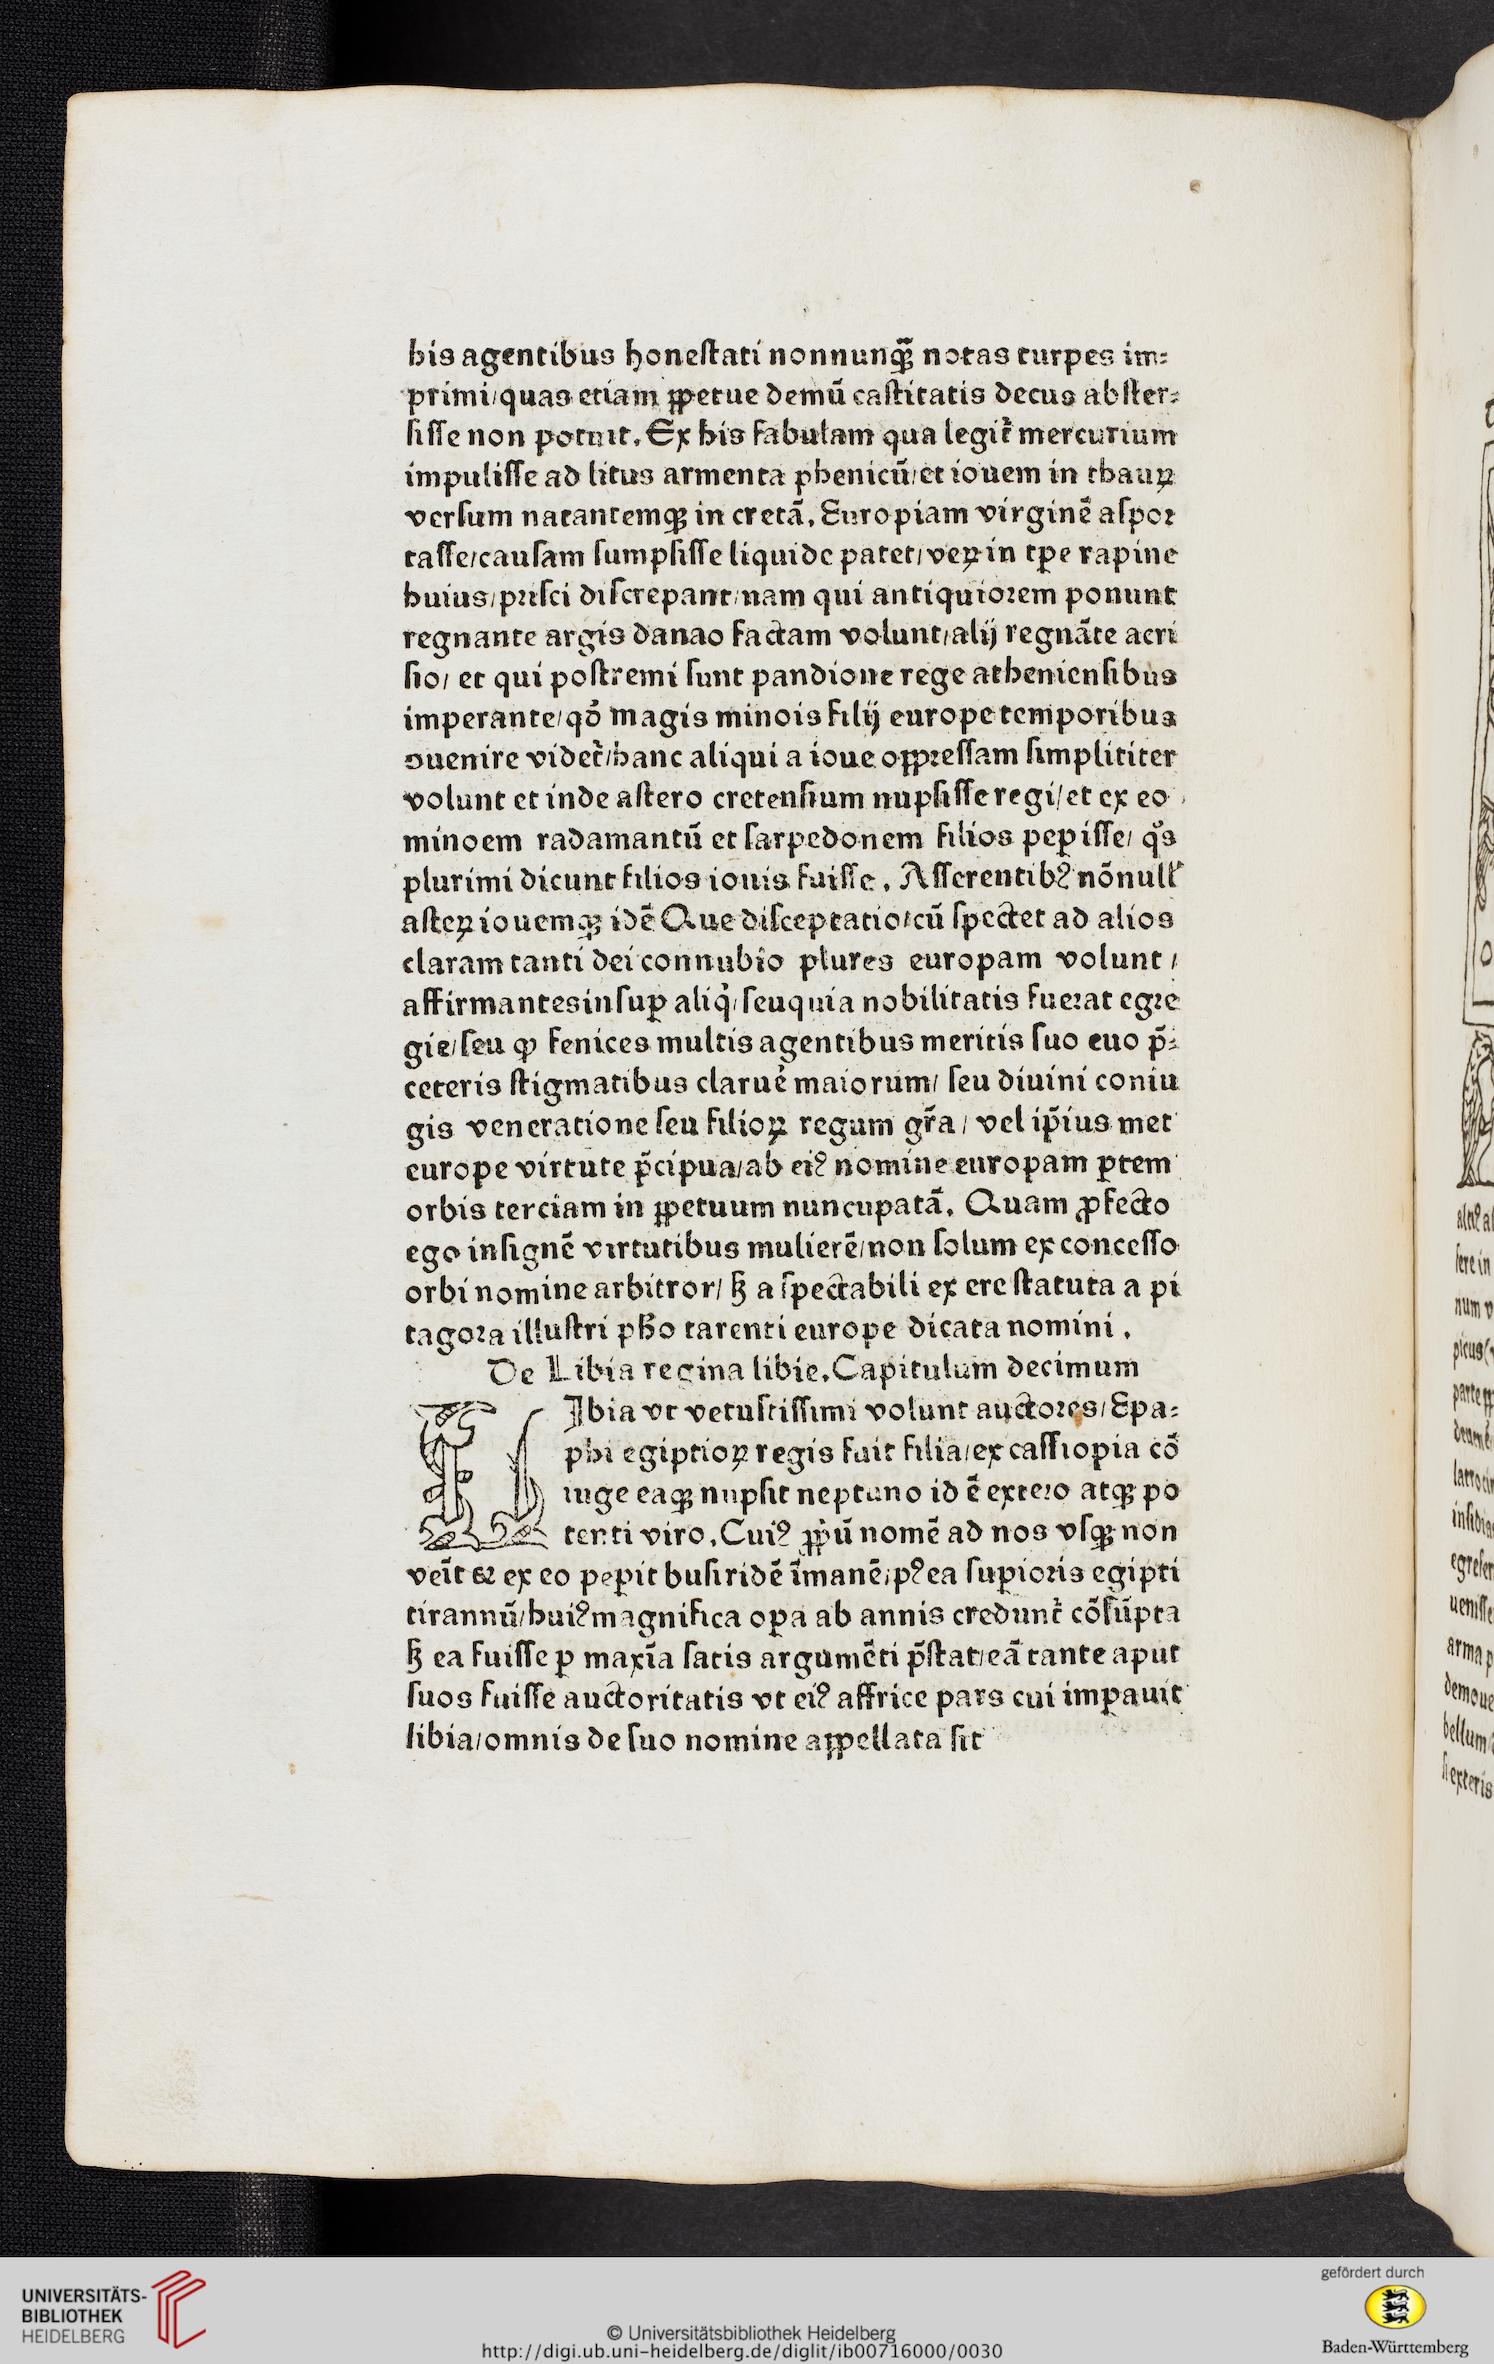 his agentibus honeſtati nonnunqꝫ̃ notas turpes im⸗
primi/quas etiam ꝑpetue demū caſtitatis decus abſter⸗
ſiſſe non potuit. Ex his fabulam qua legit᷑ mercurium
impuliſſe ad litus armenta phenicū/et iouem in thauꝝ
verſum natantemqꝫ in cretā. Europiam virginē aſpor
taſſe/cauſam ſumpſiſſe liquide patet/veꝝ in tꝑe rapine
huius/priſci diſcrepant/nam qui antiquiorem ponunt
regnante argis danao factam volunt/alij regnāte acri
ſio/ et qui poſtremi ſunt pandione rege athenienſibus
imperante/qď magis minois filij europe temporibus
ↄuenire videt᷑/hanc aliqui a ioue oppreſſam ſimplititer
volunt et inde aſtero cretenſium nupſiſſe regi/et ex eo
minoem radamantū et ſarpedonem filios peꝑiſſe/ qͦs
plurimi dicunt filios iouis fuiſſe. Aſſerentibꝰ nōnull'
aſteꝝ iouemqꝫ idē Que diſceptatio/cū ſpectet ad alios
claram tanti dei connubio plures europam volunt/
affirmantes inſuꝑ aliqͥ/ſeu quia nobilitatis fuerat egre
gie/ſeu ꝙ fenices multis agentibus meritis ſuo euo p̄⸗
ceteris ſtigmatibus claruē maiorum/ ſeu diuini coniu
gis veneratione ſeu filioꝝ regum gr̄a/ vel ip̄ius met
europe virtute p̄cipua/ab eiꝰ nomine europam ꝑtem
orbis terciam in ꝑpetuum nuncupatā. Quam ꝓfecto
ego inſignē virtutibus mulierē/non ſolum ex conceſſo
orbi nomine arbitror/ ſꝫ a ſpectabili ex ere ſtatuta a pi
tagora illuſtri pħo tarenti europe dicata nomini.
De Libia regina libie. Capitulum decimum
LIbia vt vetuſtiſſimi volunt auctores/Epa⸗
phi egiptioꝝ regis fuit filia/ex caſſiopia cō
iuge eaqꝫ nupſit neptuno id ē extero atqꝫ po
tenti viro. Cuiꝰ ꝓpͥū nomē ad nos vſqꝫ non
veīt &amp; ex eo peꝑit buſiridē īmanē/pꝰea ſuꝑioris egipti
tirannū/huiꝰ magnifica oꝑa ab annis credunt᷑ cōſūpta
ſꝫ ea fuiſſe ꝑ maxīa ſatis argumēti p̄ſtat/eā tante aput
ſuos fuiſſe auctoritatis vt eiꝰ affrice pars cui imꝑauit
libia/omnis de ſuo nomine appellata ſit
UNIVERSITÄTS-
BIBLIOTHEK
HEIDELBERG
© Universitätsbibliothek Heidelberg
http://digi.ub.uni-heidelberg.de/diglit/ib00716000/0030
gefördert durch
Baden-Württemberg